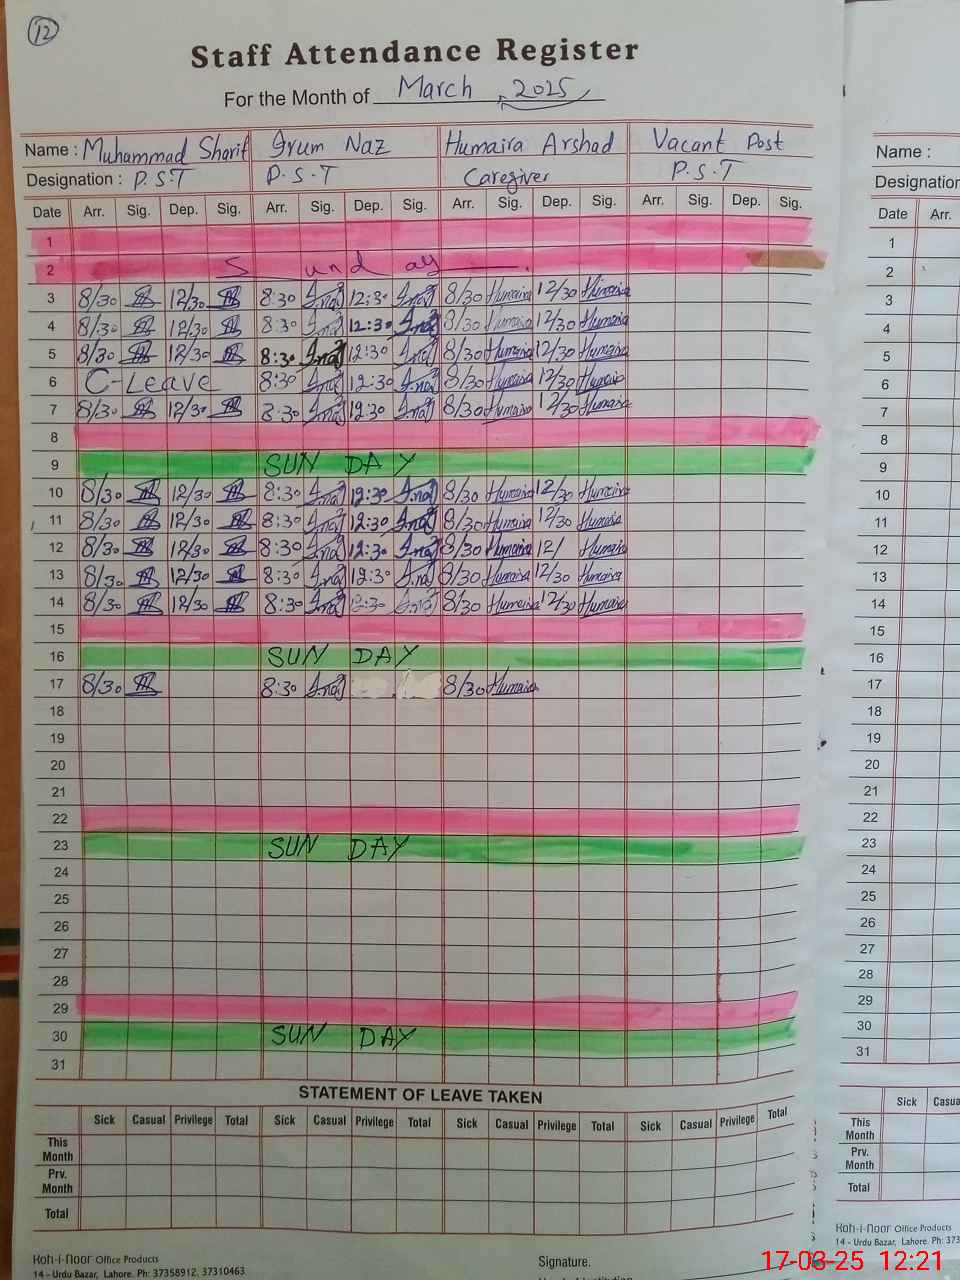 12
Staff Attendance Register
For the Month of March, 2025
Name : Muhammad Sharif Irum Naz Humaira Arshad Vacant Post
Designation : P.S.T P.S.T Caregiver P.S.T
Date Arr. Sig. Dep. Sig. Arr. Sig. Dep. Sig. Arr. Sig. Dep. Sig. Arr. Sig. Dep. Sig.
1
2 Sunday
3 8/30 12/30 8:30 12:30 8/30 Humaira 12/30 Humaira
4 8/30 12/30 8:30 12:30 8/30 Humaira 12/30 Humaira
5 8/30 12/30 8:30 12:30 8/30 Humaira 12/30 Humaira
6 C-Leave 8:30 12:30 8/30 Humaira 12/30 Humaira
7 8/30 12/30 8:30 12:30 8/30 Humaira 12/30 Humaira
8
9 SUN DAY
10 8/30 12/30 8:30 12:30 8/30 Humaira 12/30 Humaira
11 8/30 12/30 8:30 12:30 8/30 Humaira 12/30 Humaira
12 8/30 12/30 8:30 12:30 8/30 Humaira 12/ Humaira
13 8/30 12/30 8:30 12:30 8/30 Humaira 12/30 Humaira
14 8/30 12/30 8:30 12:30 8/30 Humaira 12/30 Humaira
15
16 SUN DAY
17 8/30 8:30 8/30 Humaira
18
19
20
21
22
23 SUN DAY
24
25
26
27
28
29
30 SUN DAY
31
STATEMENT OF LEAVE TAKEN
Sick Casual Privilege Total Sick Casual Privilege Total Sick Casual Privilege Total Sick Casual Privilege Total
This Month
Prv. Month
Total
Koh-i-Noor Office Products
14 - Urdu Bazar, Lahore. Ph: 37358912, 37310463
Signature.
Name :
Designation
Date Arr.
1
2
3
4
5
6
7
8
9
10
11
12
13
14
15
16
17
18
19
20
21
22
23
24
25
26
27
28
29
30
31
Sick Casua
This Month
Prv. Month
Total
Koh-i-Noor Office Products
14 - Urdu Bazar, Lahore. Ph: 373
17-03-25 12:21